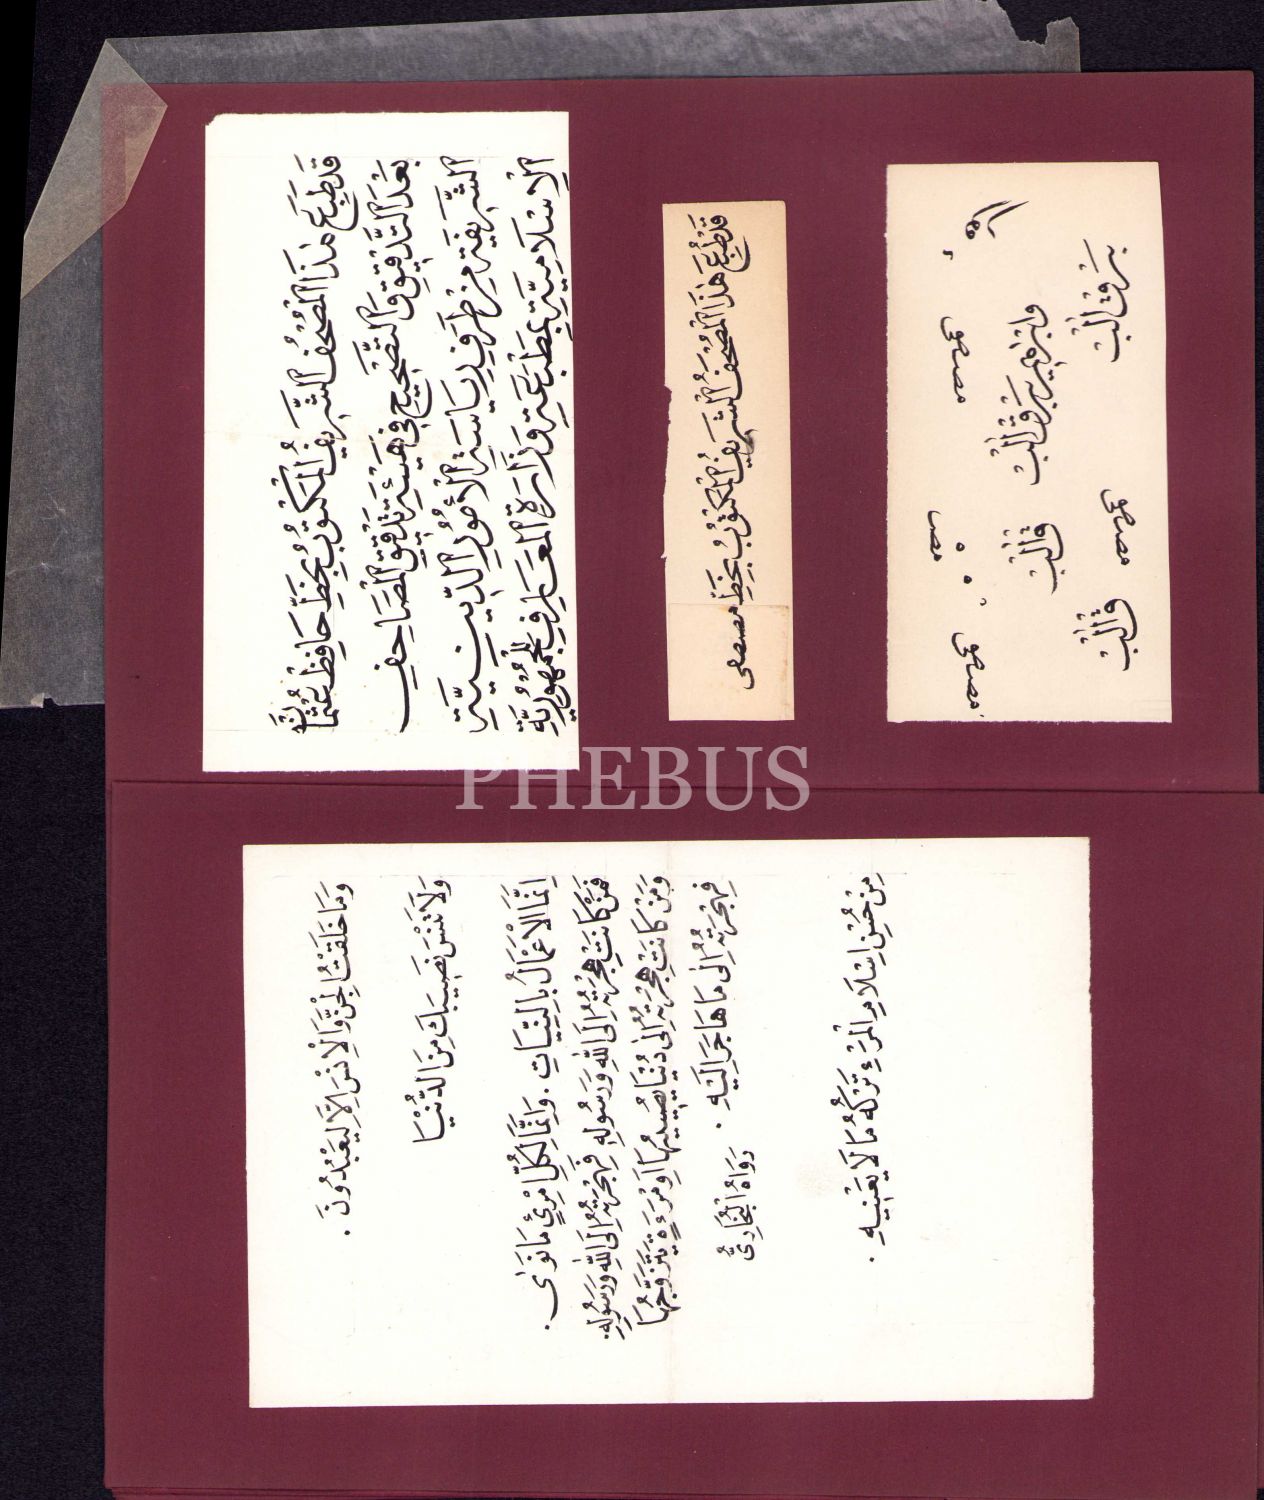 قَدْ طُبِعَ هٰذَا الْمُصْحَفُ الشَّرِيفُ الْمَكْتُوبُ بِخَطِّ حَافِظْ عُثْمَان
بَعْدَ التَّدْقِيقِ وَالتَّصْحِيحِ فِى هَيْئَةِ تَدْقِيقِ الْمَصَاحِفِ
الشَّرِيفَةِ مِنْ طَرَفِ رِيَاسَةِ الْأُمُورِ الدِّينِيَّةِ
الْاِسْلَامِيَّةِ بِمَطْبَعَةِ وَزَارَةِ الْمَعَارِفِ لِلْجُمْهُورِيَّةِ
قَدْ طُبِعَ هٰذَا الْمُصْحَفُ الشَّرِيفُ الْمَكْتُوبُ بِخَطِّ مصصحى
مصحى مصـ مصحى
قَالَتْ
بَرَقَالَتْ مصحى قَالَتْ
PHEBUS
وَمَا خَلَقْتُ الْجِنَّ وَالْاِنْسَ اِلَّا لِيَعْبُدُونَ .
وَلَا تَنْسَ نَصِيبَكَ مِنَ الدُّنْيَا
اِنَّمَا الْاَعْمَالُ بِالنِّيَّاتِ . وَاِنَّمَا لِكُلِّ امْرِئٍ مَانَوٰى .
فَمَنْ كَانَتْ هِجْرَتُهُ اِلَى اللهِ وَرَسُولِهِ فَهِجْرَتُهُ اِلَى اللهِ وَرَسُولِهِ.
وَمَنْ كَانَتْ هِجْرَتُهُ اِلٰى دُنْيَا يُصِيبُهَا اَوِ مْرَءَةٍ يَتَزَوَّجُهَا
فَهِجْرَتُهُ اِلٰى مَا هَاجَرَ اِلَيْهِ . رَوَاهُ الْبُخَارِىُّ
مِنْ حُسْنِ اِسْلَامِ الْمَرْءِ تَرْكُهُ مَا لَا يَعْنِيهِ .